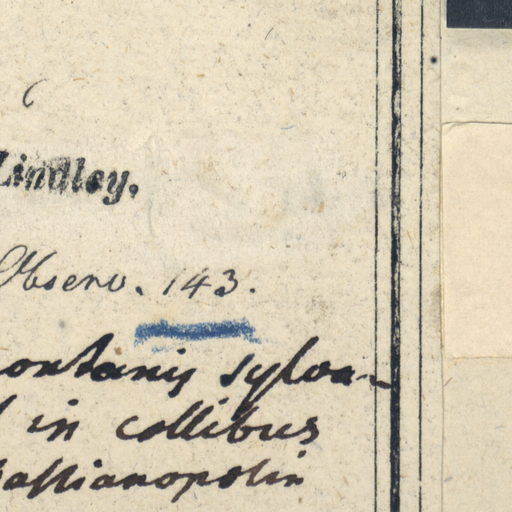 Lindley.
Observ. 143.
ontanis sylva-
in collibus
assianopolin